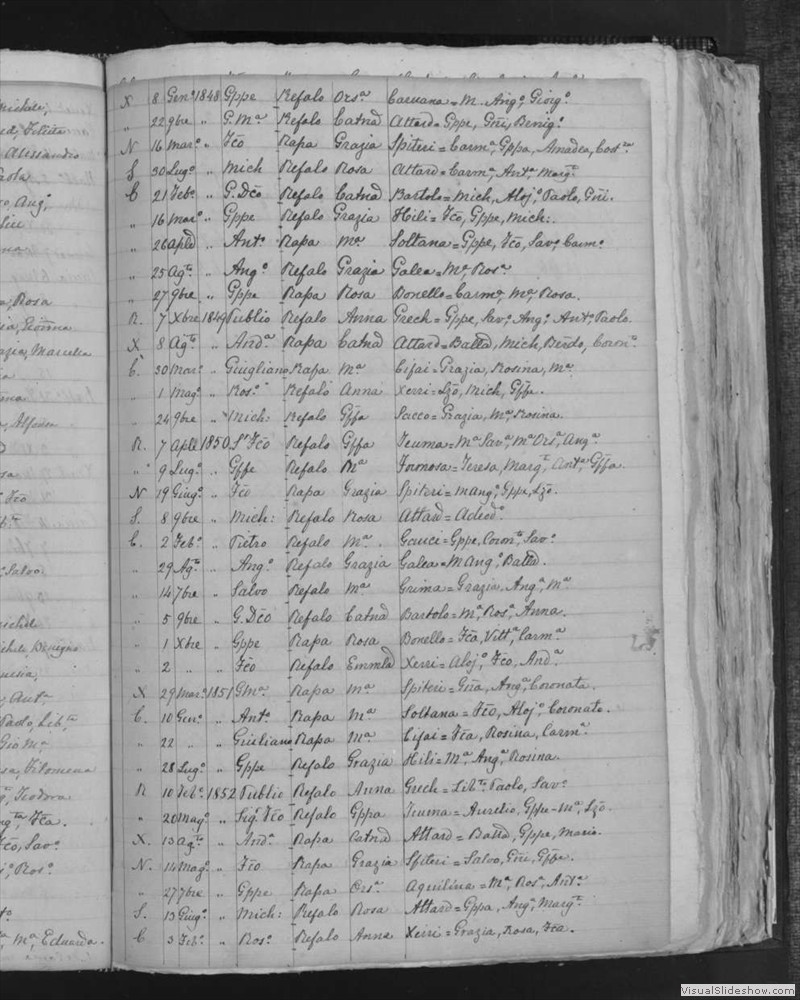 Michele,
Alessandro
Paola
Ang.
a, Rosa
Marcella
Alfonso
Salvo
Michele
Benigno
Ant.a
Paolo, Lib.ta
Gio M.a
Filomena
Teodora
Sav.o
Ros.o
M.a, Eduarda.
X 8 Gen.o 1848 Gppe Refalo Ors.a Caruana = M. Ang.a, Giorg.o
„ 22 9bre „ G. M.a Refalo Catnd Attard = Gppe, Gni, Benig.o
N 16 mar.o „ Fco Rapa Grazia Spiteri = Carm.a, Gppa, Amadea, Cost.a
S 30 Lug.o „ Mich Refalo Rosa Attard = Carm.a, Ant.a, Marg.ta
C 21 Feb.o „ G. Dco Refalo Catnd Bartolo = Mich, Aloj.o, Paolo, Gni.
„ 16 Mar.o „ Gppe Refalo Grazia Hili = Fco, Gppe, Mich:
„ 26 Aple „ Ant.o Rapa M.a Soltana = Gppe, Fco, Sav.o, Carm.o
„ 25 Ag.to „ Ang.o Refalo Grazia Galea = M.a, Ros.a
„ 27 9bre „ Gppe Rapa Rosa Bonello = Carm.a, M.a, Rosa.
R. 7 Xbre 1849 Publio Refalo Anna Grech = Gppe, Sav.o, Ang.o, Ant.o, Paolo.
X 8 Ag.to „ And.a Rapa Catnd Attard = Battd, Mich, Coron.a
C. 30 Mar.o „ Giugliano Rapa M.a Cifai = Grazia, Rosina, M.a
„ 1 Mag.o „ Ros.o Refalo Anna Xerri = Lzo, Mich, Gppe.
„ 24 9bre „ Mich: Refalo Gppa Sacco = Grazia, M.a, Rosina.
R. 7 Aple 1850 S.r Fco Refalo Gppa Teuma = M.a Sav.a, M.a Ors.a, Ang.a
„ 9 Lug.o „ Gppe Refalo M.a Formosa = Teresa, Marg.ta, Ant.a, Gppa.
N 19 Giug.o „ Fco Rapa Grazia Spiteri = M Ang.o, Gppe, Lzo.
S. 8 9bre „ Mich: Refalo Rosa Attard = Adeod.o
C. 2 Feb.o „ Pietro Refalo M.a Gauci = Gppe, Coron.ta, Sav.o
„ 29 Ag.to „ Ang.o Refalo Grazia Galea = M Ang.o, Battd.
„ 14 7bre „ Salvo Refalo M.a Grima = Grazia, Ang.a, M.a
„ 5 9bre „ G. Dco Refalo Catnd Bartolo = M.a, Ros.a, Anna.
„ 1 Xbre „ Gppe Rapa Rosa Bonello = Fca, Vitt.a, Carm.a
„ 2 „ „ Fco Refalo Emmld Xerri = Aloj.o, Fco, And.a
X 29 Mar.o 1851 G M.a Rapa M.a Spiteri = Gna, Ang.a, Coronata.
C. 10 Gen.o „ Ant.o Rapa M.a Soltana = Fco, Aloj.o, Coronato.
„ 22 „ „ Giuliano Rapa M.a Cifai = Fca, Rosina, Carm.a
„ 28 Lug.o „ Gppe Refalo Grazia Hili = M.a, Ang.a, Rosina.
R 10 Feb.o 1852 Publio Refalo Anna Grech = Lib.ta, Paolo, Sav.o
„ 20 Mag.o „ Sig.r Fco Refalo Gppa Teuma = Aurelio, Gppe-M.a, Lzo.
X. 13 Ag.to „ And.a Rapa Catnd Attard = Battd, Gppe, Maria.
N. 14 Mag.o „ Fco Rapa Grazia Spiteri = Salvo, Gni, Gppe.
„ 27 7bre „ Gppe Rapa Ors.a Aquilina = M.a, Ros.a, Ant.o
S. 13 Giug.o „ Mich: Refalo Rosa Attard = Gppa, Ang.o, Marg.ta
C 3 Feb.o „ Ros.o Refalo Anna Xerri = Grazia, Rosa, Fca.
VisualSlideshow.com